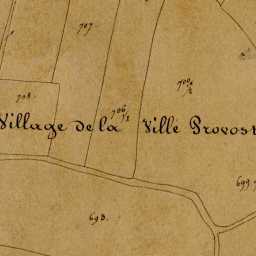 707
700
1/2
706
1/2
708
Village de la Ville Provost
699
698